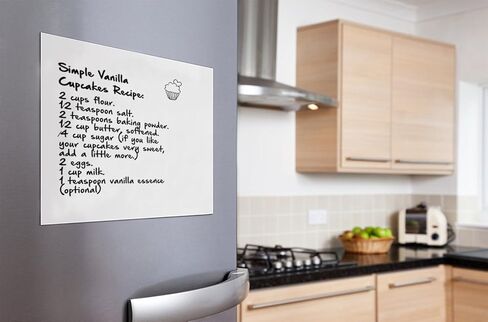 Simple Vanilla
Cupcakes Recipe:
2 cups flour.
12 teaspoon salt.
2 teaspoons baking powder.
12 cup butter, softened.
4 cup sugar (if you like
your cupcakes very sweet,
add a little more.)
2 eggs.
1 cup milk.
1 teaspopn vanilla essence
(optional)